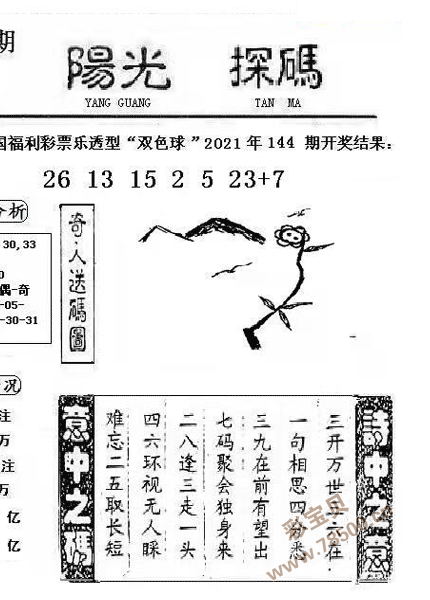 期
陽光 探碼
YANG GUANG TAN MA
国福利彩票乐透型“双色球”2021年144 期开奖结果:
26 13 15 2 5 23+7
分析
30,33
0
偶-奇
-05-
-30-31
奇·人送碼圖
况
注
万
注
万
亿
亿
詩中之意
三开万世五六在
一句相思四分悉
三九在前有望出
七码聚会独身来
二八逢三走一头
四六环视无人睬
难忘二五取长短
意中之碼
彩宝贝